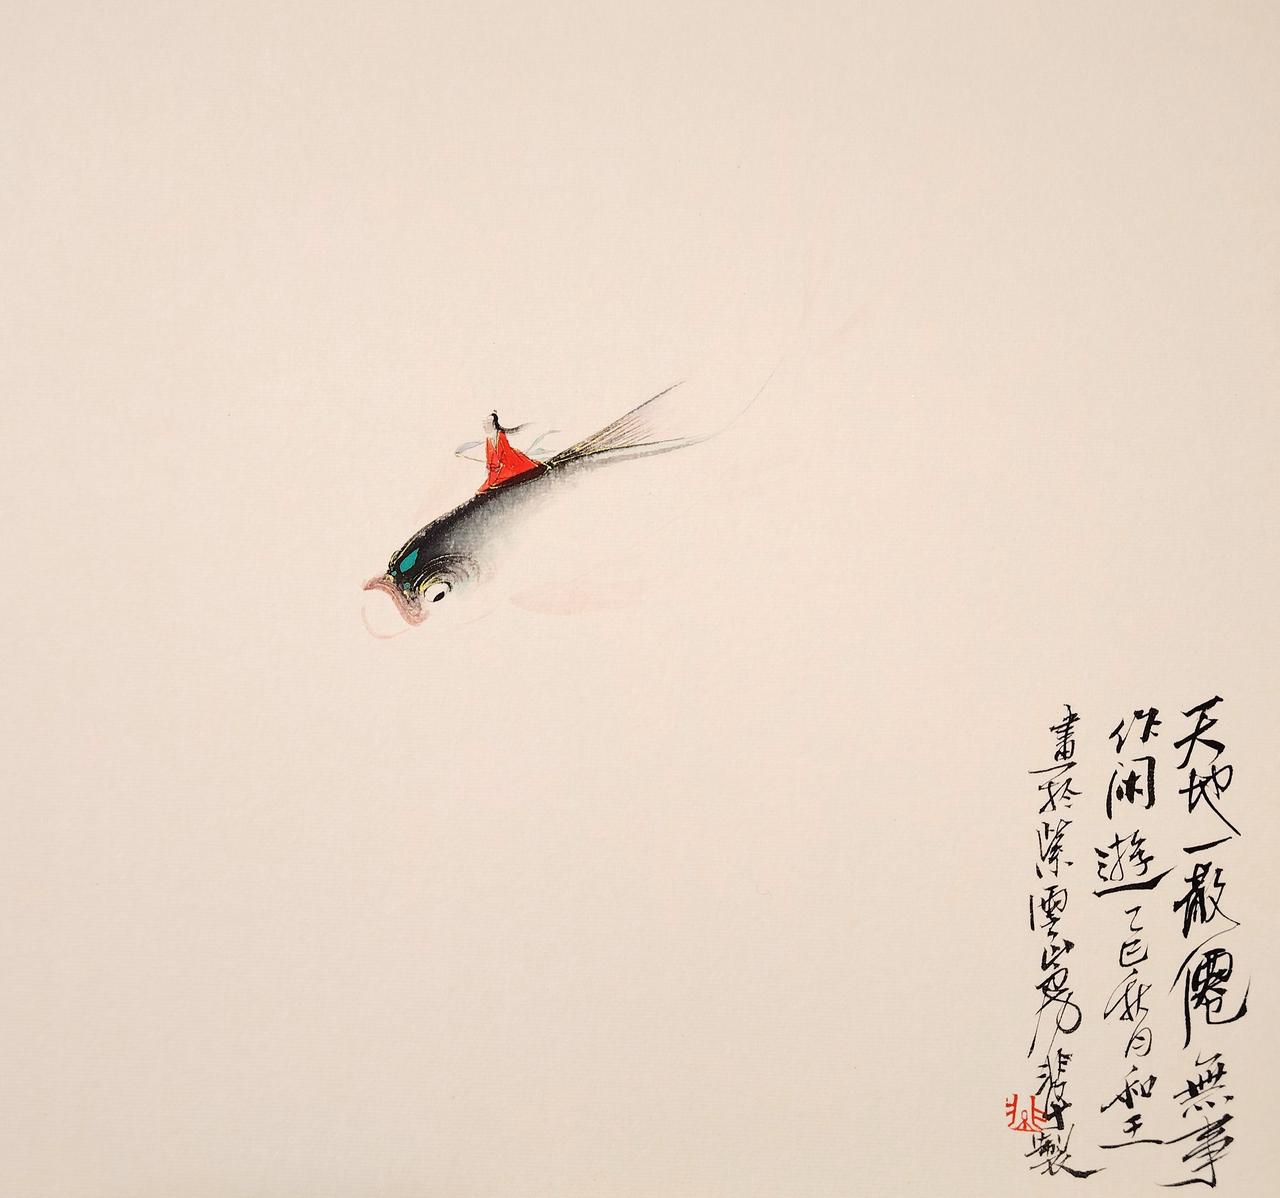 天地一散僊無事
作闲遊乙巳秋月和玉
畫於紫雲山房斐製